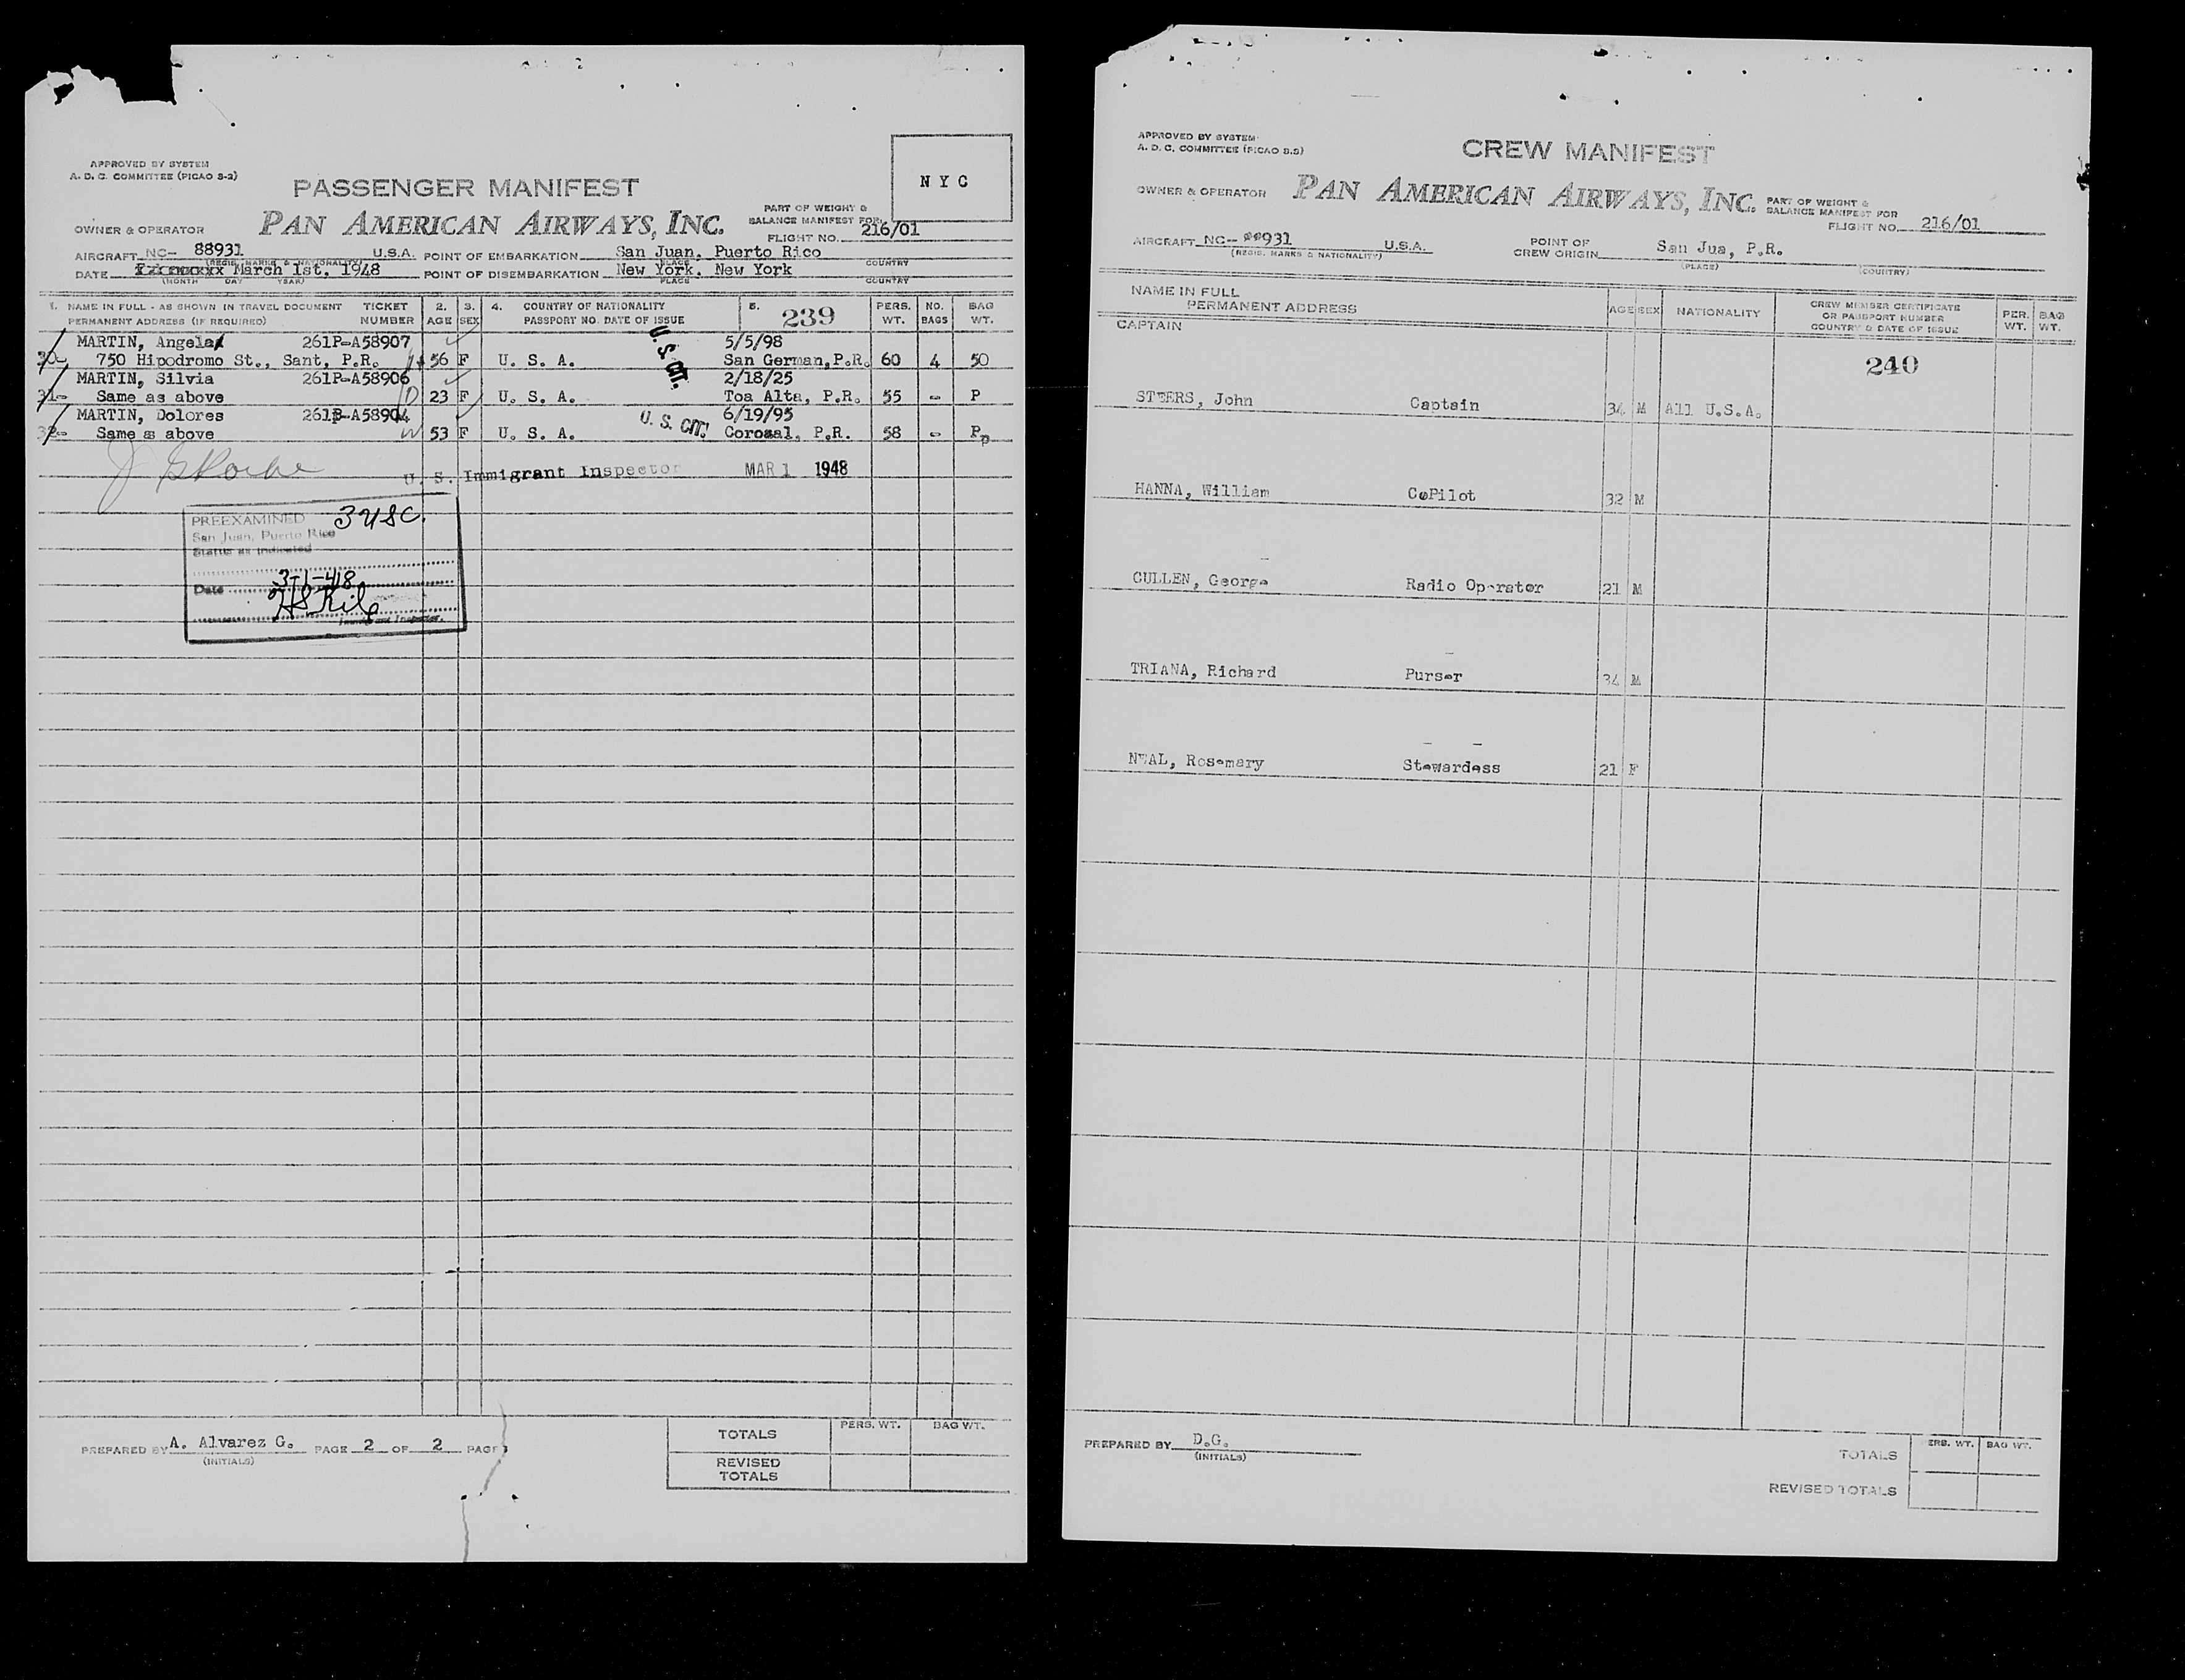 APPROVED BY SYSTEM
A. D. C. COMMITTEE (PICAO 3-2)
PASSENGER MANIFEST
N Y C
OWNER & OPERATOR PAN AMERICAN AIRWAYS, INC.
PART OF WEIGHT &
BALANCE MANIFEST FOR
FLIGHT NO. 216/01
AIRCRAFT NC- 88931 U.S.A. POINT OF EMBARKATION San Juan, Puerto Rico
(REGIS. MARKS & NATIONALITY) PLACE COUNTRY
DATE March 1st, 1948 POINT OF DISEMBARKATION New York, New York
(MONTH DAY YEAR) PLACE COUNTRY
1. NAME IN FULL - AS SHOWN IN TRAVEL DOCUMENT TICKET 2. 3. 4. COUNTRY OF NATIONALITY 5. 239 PERS. NO. BAG
PERMANENT ADDRESS (IF REQUIRED) NUMBER AGE SEX PASSPORT NO. DATE OF ISSUE WT. BAGS WT.
MARTIN, Angela 261P-A58907 5/5/98
30- 750 Hipodromo St., Sant, P.R. 56 F U. S. A. U. S. CIT. San German, P.R. 60 4 50
MARTIN, Silvia 261P-A58906 2/18/25
31- Same as above 23 F U. S. A. Toa Alta, P.R. 55 - P
MARTIN, Dolores 261P-A58904 6/19/95
32- Same as above W 53 F U. S. A. U. S. CIT. Corozal, P.R. 58 - Pp
U. S. Immigrant Inspector MAR 1 1948
PREEXAMINED 3 USC.
San Juan, Puerto Rico
Status as indicated
Date 3-1-48
Immigrant Inspector.
TOTALS PERS. WT. BAG WT.
REVISED
TOTALS
PREPARED BY A. Alvarez G. PAGE 2 OF 2 PAGE
(INITIALS)
APPROVED BY SYSTEM
A. D. C. COMMITTEE (PICAO 3-2)
CREW MANIFEST
OWNER & OPERATOR PAN AMERICAN AIRWAYS, INC.
PART OF WEIGHT &
BALANCE MANIFEST FOR
FLIGHT NO. 216/01
AIRCRAFT NC- 931 U.S.A. POINT OF
CREW ORIGIN San Jua, P.R.
(REGIS. MARKS & NATIONALITY) (PLACE) (COUNTRY)
NAME IN FULL
PERMANENT ADDRESS
AGE SEX NATIONALITY
CREW MEMBER CERTIFICATE
OR PASSPORT NUMBER
COUNTRY & DATE OF ISSUE
PER. WT. BAG WT.
CAPTAIN
240
STEERS, John Captain 34 M All U.S.A.
HANNA, William CoPilot 32 M
CULLEN, George Radio Operator 21 M
TRIANA, Richard Purser 34 M
NEAL, Rosemary Stewardess 21 F
PREPARED BY D.G.
(INITIALS)
TOTALS PERS. WT. BAG WT.
REVISED TOTALS